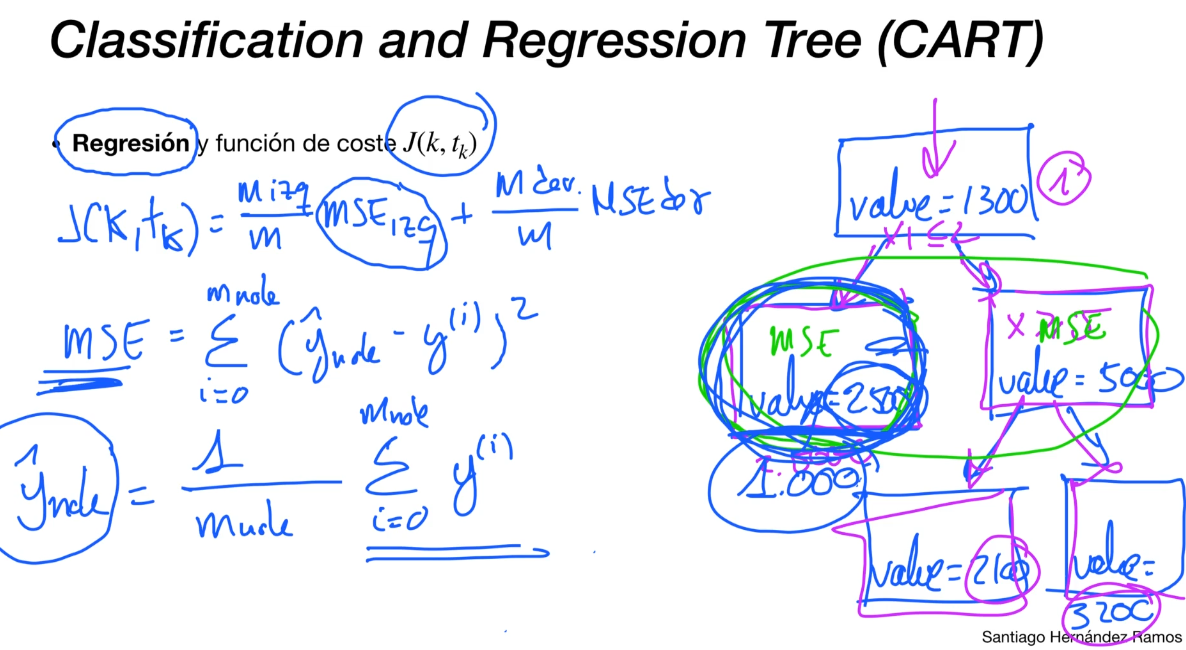 Classification and Regression Tree (CART)
• Regresión y función de coste J(k, t_k)
J(k, t_k) = m izq / m MSE izq + m der. / m MSE der
MSE = Σ i=0 m node (ŷ node - y^(i))²
ŷ node = 1 / m node Σ i=0 m node y^(i)
value = 1300
1º
x1 ≤ 2
MSE
value = 2500
MSE
value = 5000
1.000
value = 2100
value =
3200
Santiago Hernández Ramos